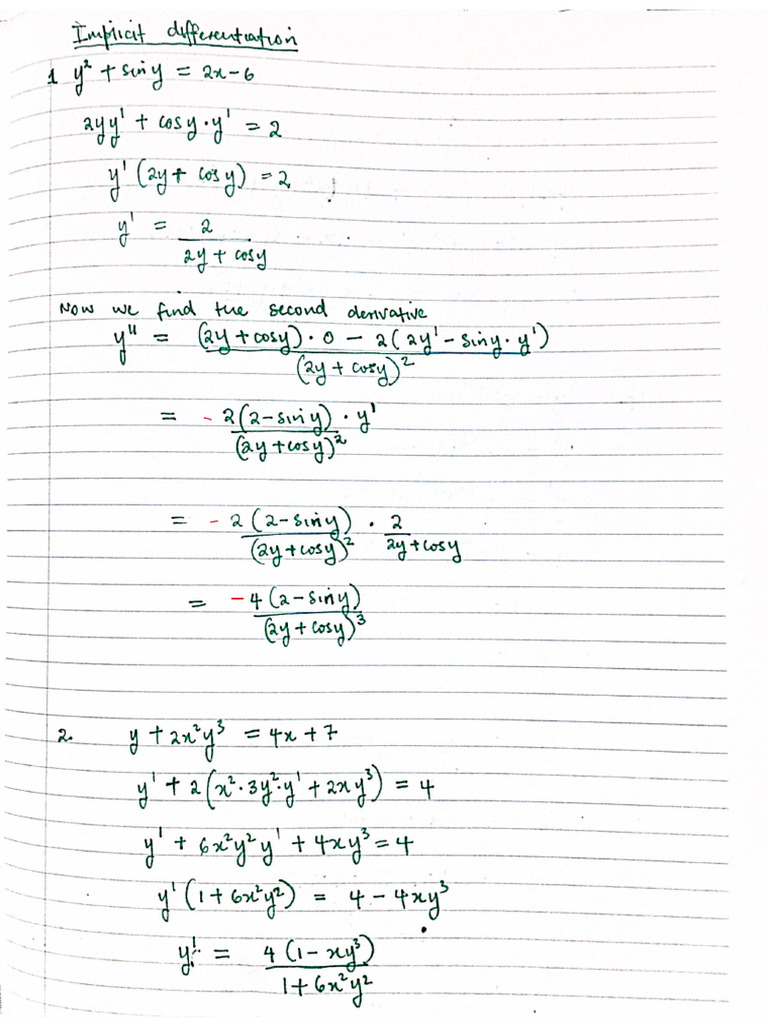 Implicit differentiation
1 y² + sin y = 2x - 6
2yy' + cosy · y' = 2
y' (2y + cosy) = 2
y' = 2 / (2y + cosy)
Now we find the second derivative
y" = ((2y + cosy) · 0 - 2(2y' - siny · y')) / (2y + cosy)²
= - 2(2 - siny) / (2y + cosy)² · y'
= - 2(2 - siny) / (2y + cosy)² · 2 / (2y + cosy)
= - 4(2 - siny) / (2y + cosy)³
2. y + 2x²y³ = 4x + 7
y' + 2(x² · 3y² · y' + 2xy³) = 4
y' + 6x²y²y' + 4xy³ = 4
y' (1 + 6x²y²) = 4 - 4xy³
y' = 4(1 - xy³) / (1 + 6x²y²)